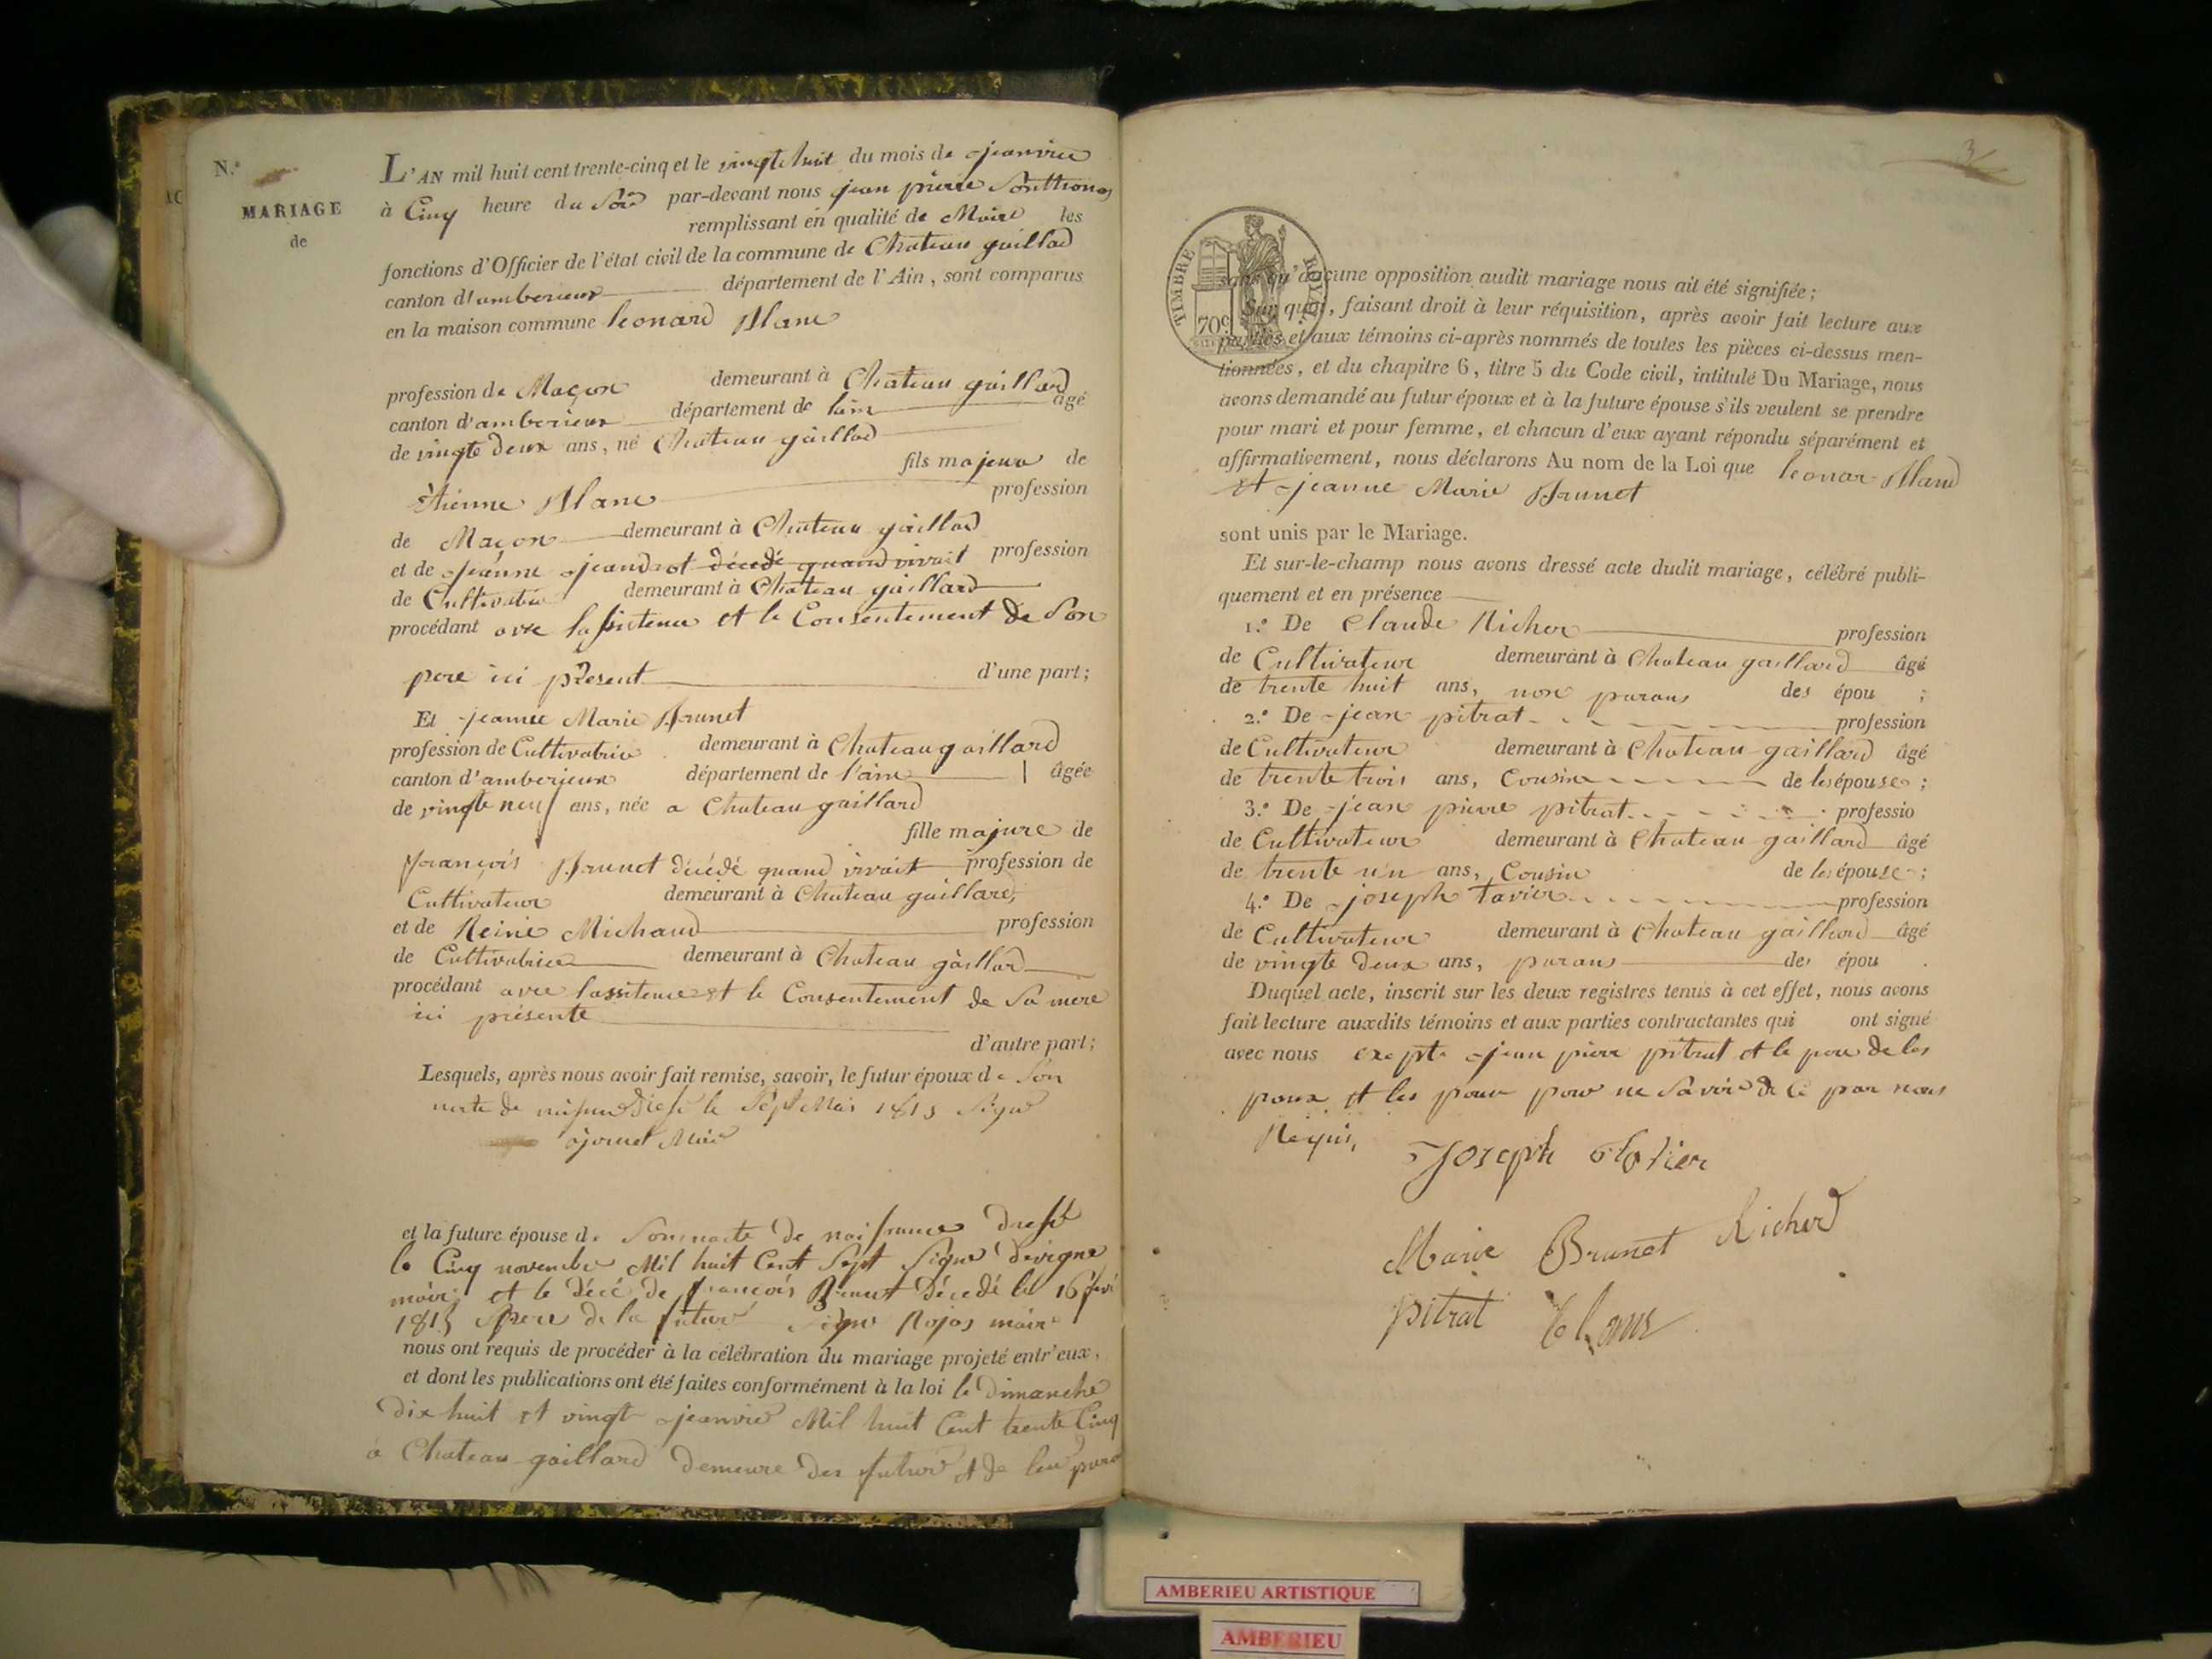 N.°
MARIAGE
de
L'AN mil huit cent trente-cinq et le vingte huit du mois de jeanvier
à Cinq heure du Soir par-devant nous jean pierre
remplissant en qualité de Maire les
fonctions d'Officier de l'état civil de la commune de Chateau gaillad
canton d'amberieux département de l'Ain, sont comparus
en la maison commune leonard Blanc
profession de Maçon demeurant à Chateau gaillard
canton d'amberieux département de lain âgé
de vingte deux ans, né Chateau gaillad
fils majeur de
Étienne Blanc profession
de Maçon demeurant à Chateau gaillad
et de jeanne jeandrot décédé quand vivait profession
de Cultivatrice demeurant à Chateau gaillard
procédant avec et le Consentement de Son
pere ici présent d'une part;
Et jeanne Marie Brunet
profession de Cultivatrice demeurant à Chateau gaillard
canton d'amberieux département de l'ain âgée
de vingte neuf ans, née a Chateau gaillard
fille majure de
François Brunet décédé quand vivait profession de
Cultivateur demeurant à Chateau gaillard,
et de Reine Michaud profession
de Cultivatrice demeurant à Chateau gaillad
procédant avec lassitence et le Consentement de Sa mere
ici présente
d'autre part;
Lesquels, après nous avoir fait remise, savoir, le futur époux de Son
le Sept Mai 1813 Signé
Maire
et la future épouse de Son nacte de naissance dressé
le Cinq novembre Mil huit Cent Sept Signé devigne
maire et le décé de françois Brunet Décedé le 16
1815 pere de la futur Signé Rojas maire
nous ont requis de procéder à la célébration du mariage projeté entr'eux,
et dont les publications ont été faites conformément à la loi le Dimanche
dix huit et vingt jeanvier Mil huit Cent trente Cinq
a Chateau gaillard demeure des futur et de leur
3
TIMBRE ROYAL
70c
sans qu'aucune opposition audit mariage nous ait été signifiée;
Sur quoi, faisant droit à leur réquisition, après avoir fait lecture aux
parties et aux témoins ci-après nommés de toutes les pièces ci-dessus men-
tionnées, et du chapitre 6, titre 5 du Code civil, intitulé Du Mariage, nous
avons demandé au futur époux et à la future épouse s'ils veulent se prendre
pour mari et pour femme, et chacun d'eux ayant répondu séparément et
affirmativement, nous déclarons Au nom de la Loi que leonar Bland
et jeanne Marie Brunet
sont unis par le Mariage.
Et sur-le-champ nous avons dressé acte dudit mariage, célébré publi-
quement et en présence
1.° De Claude Richer profession
de Cultivateur demeurant à Chateau gaillard âgé
de trente huit ans, non parans des épou ;
2.° De jean pitrat profession
de Cultivateur demeurant à Chateau gaillard âgé
de trente trois ans, Cousin de les épouse ;
3.° De jean pierre pitrat professio
de Cultivateur demeurant à Chateau gaillard âgé
de trente un ans, Cousin de les épouse ;
4.° De joseph tavier profession
de Cultivateur demeurant à Chateau gaillard âgé
de vingte deux ans, parans des épou .
Duquel acte, inscrit sur les deux registres tenus à cet effet, nous avons
fait lecture auxdits témoins et aux parties contractantes qui ont signé
avec nous exepte jean pierre pitrat et le pere de les
poux et les poux pour ne Savoir de Ce par nous
Requis,
Joseph
Marie Brunet Richerd
pitrat Blanc
AMBERIEU ARTISTIQUE
AMBERIEU